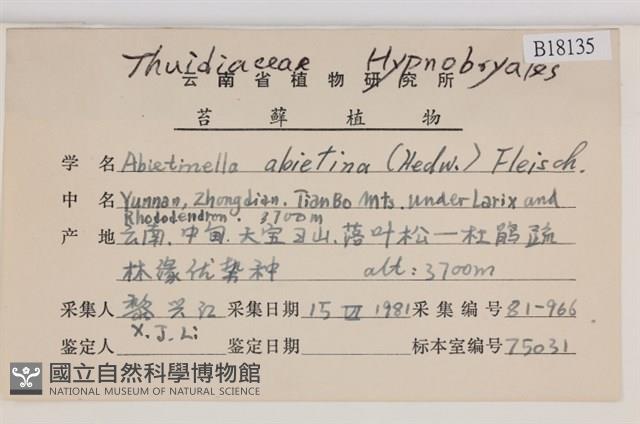 B18135
Thuidiaceae Hypnobryales
云南省植物研究所
苔藓植物
学名 Abietinella abietina (Hedw.) Fleisch.
中名 Yunnan, Zhongdian. TianBo Mts. under Larix and
Rhododendron. 3700m
产地 云南.中甸.天宝山.落叶松—杜鹃疏
林缘优势种 alt: 3700m
采集人 黎兴江 采集日期 15 VI 1981 采集编号 81-966
X. J. Li
鉴定人 鉴定日期 标本室编号 75031
國立自然科學博物館
NATIONAL MUSEUM OF NATURAL SCIENCE